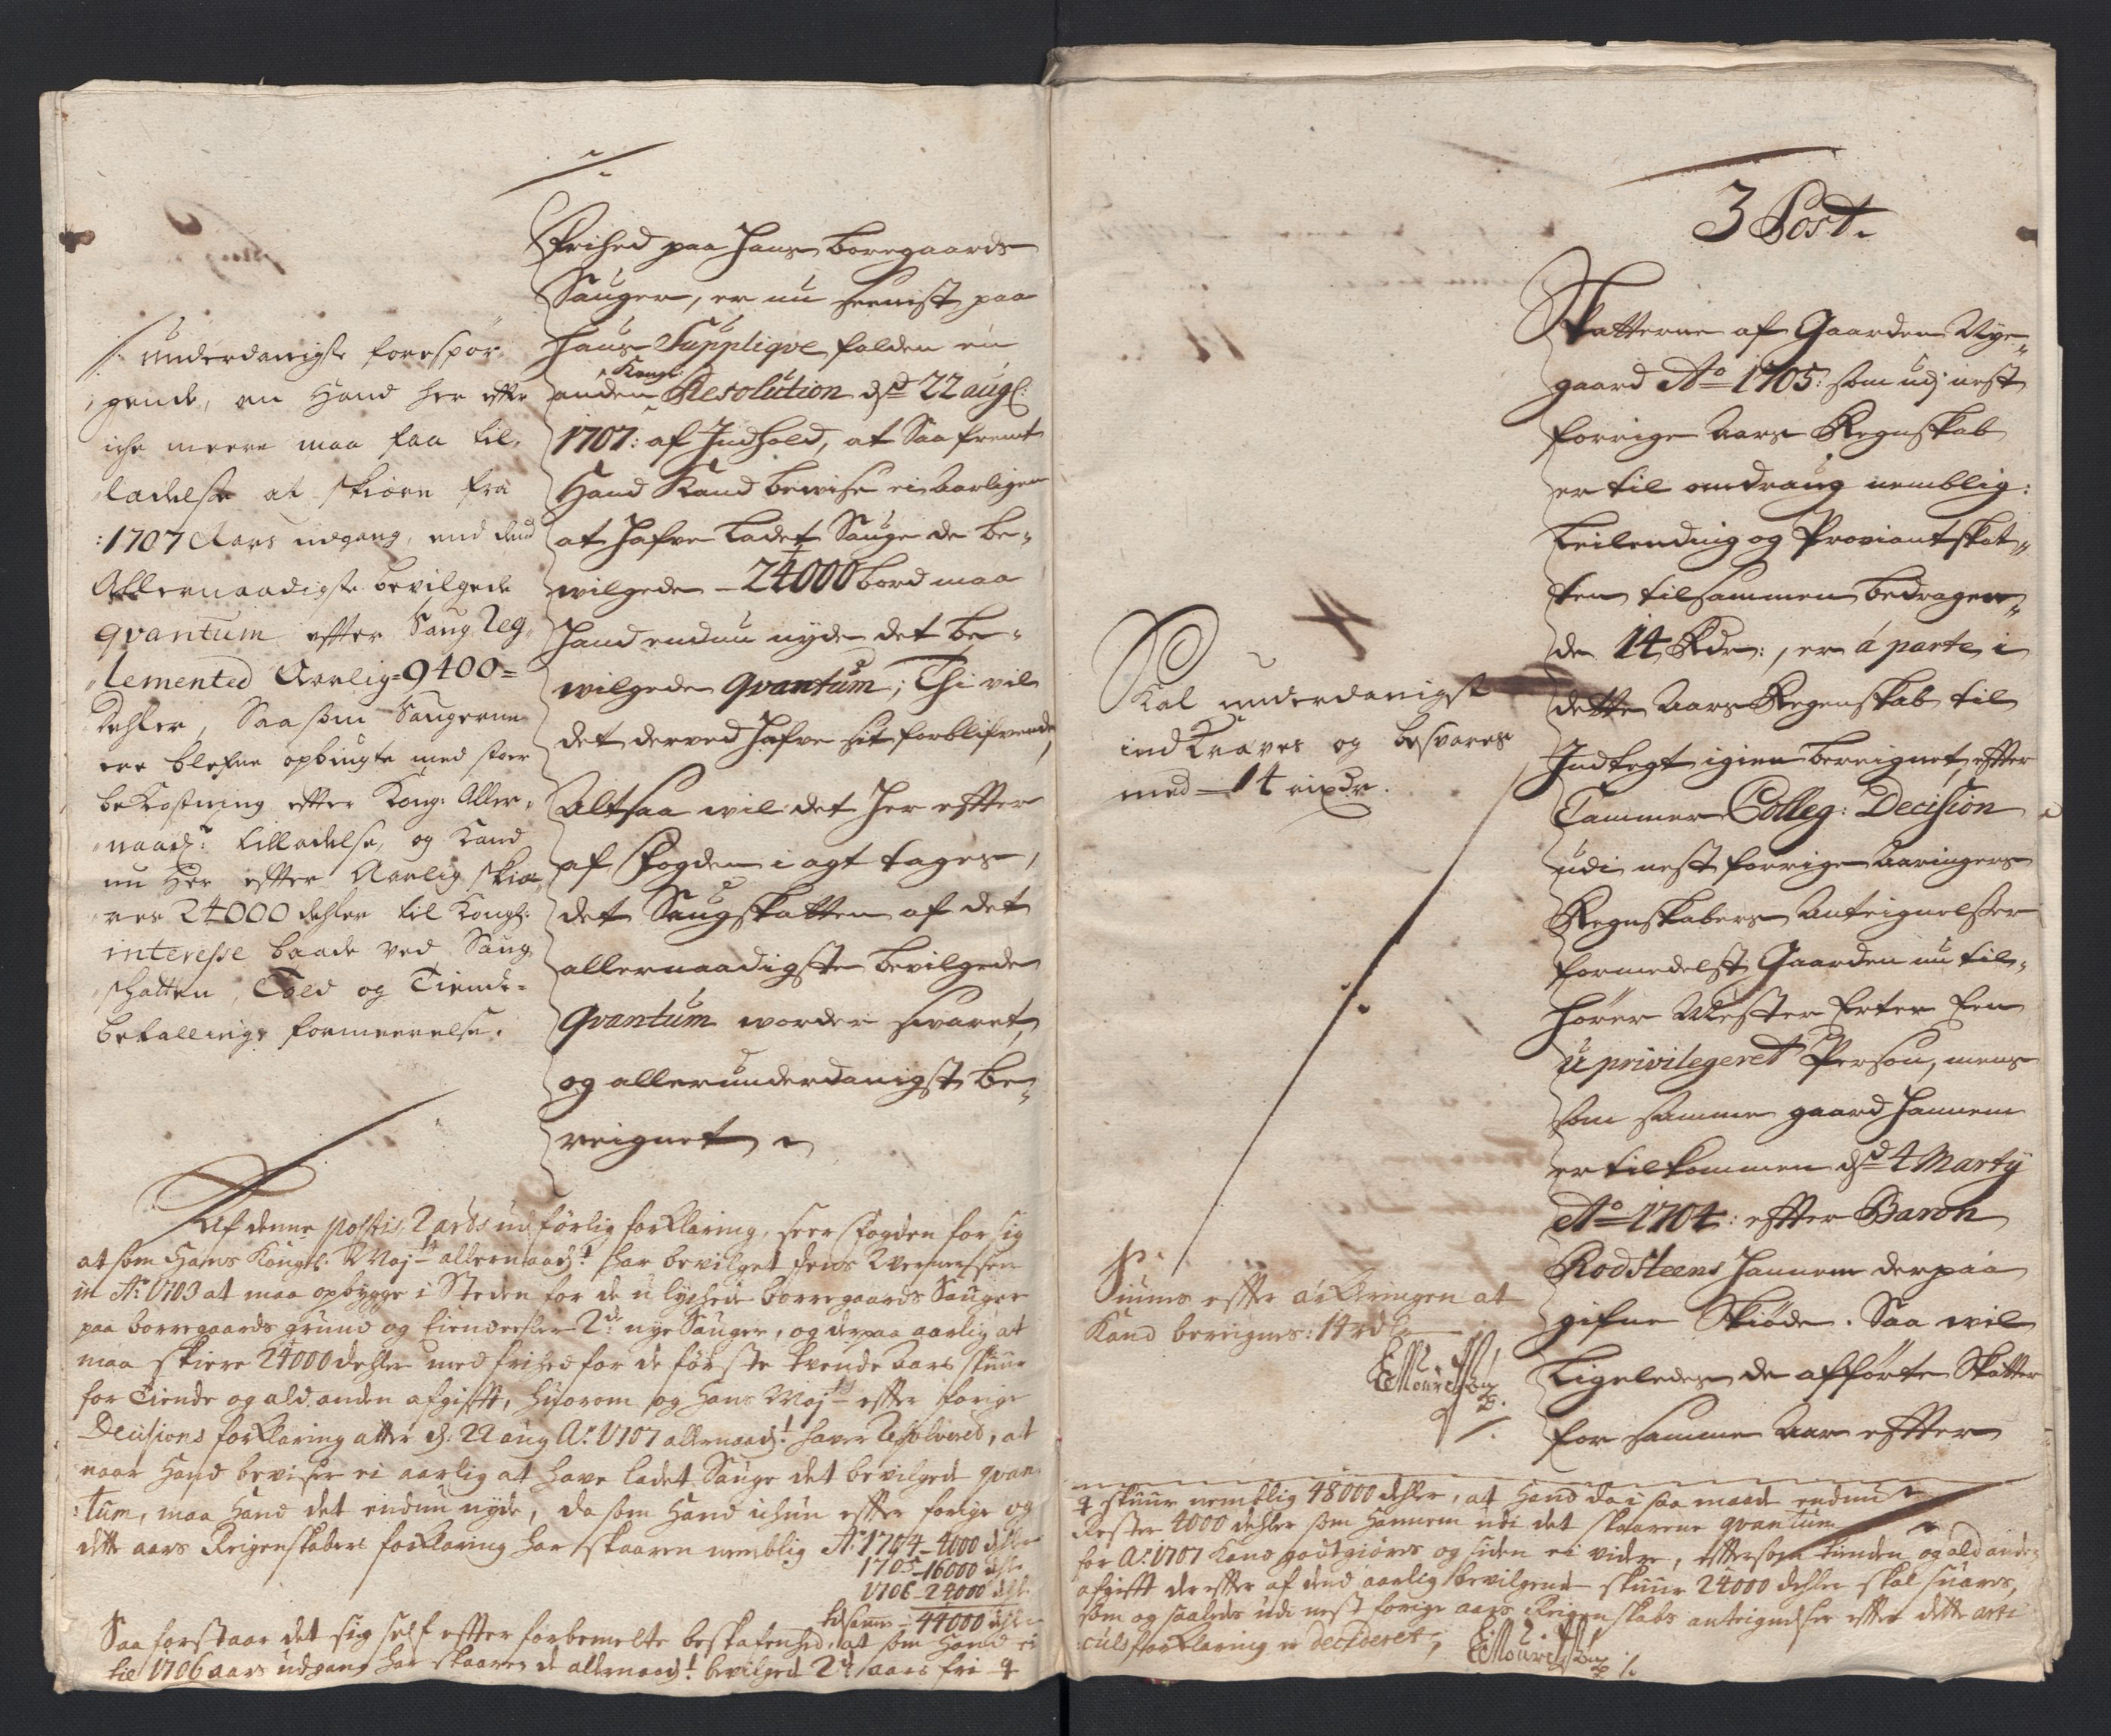 underdanigste forespør-
gende, om Hand her effter
iche meere maa faa til-
ladelse at skiære fra
1707 Aars udgang, end dend
Allernaadigste bevilgede
qvantum effter Saug Reg-
lemented Aarlig = 9400 =
dehler, Saasom Saugerne
ere blefne opbiugte med stoer
bekostning effter Kong: Aller-
naad: tilladelse, og Kand
nu Her effter Aarlig skiæ-
res 24000 dehler til Kongl:
interesse baade ved Saug
skatten, Told og Tiende-
betallings formeerelse.
Frihed paa Hans Borregaards
Sauger, er nu seenist paa
hans Supplique falden en
anden Kongl: Resolution d. 22 aug:
1707: af Indhold, at Saafremt
Hand Kand bevise ei Aarligen
at hafve ladet Sauge de be-
wilgede - 24000 bord maa
Hand endnu nyde det be-
wilgede qvantum; Thi vil
det derved hafve sit forblifvende,
Altsaa wil det her effter
af Fogden i agt tages,
det Saugskatten af det
allernaadigste bevilgede
Qvantum vorder svaret,
og allerunderdanigst be-
reignet
Af denne postis 2 ards udførlig forklaring, seer fogden for sig
at som Hans Kongl: Maj:t allernaad:t har bevilget Jens Wernersen
in A:o 1703 at maa opbygge i Steden for de u lychede borregaards Sauger
paa borregaards grund og Eiendeeler 2de nye Sauger, og derpaa aarlig at
maa skiere 24000 dehler med frihed for de første tvende Aars skuur
for Tiende og ald anden afgifft, hvorom og Hans Maj:t effter forige
Decisions forklaring atter d: 22 aug A:o 1707 allernaad:t haver Resolvered, at
naar Hand beviser ei aarlig at have ladet Sauge det bevilgede qvan-
tum, maa Hand det endnu nyde, da som Hand ichun effter forige og
dette aars Reigenskabers forklaring har skaaren nemblig A:o 1704 - 4000 dehler
1705 - 16000 dehler
1706 - 24000 dehler
tilsamen - 44000 dehler
Saa forstaar det sig self effter forbemelte beskafenhed, at som Hand ei
til 1706 aars udgang har skaaren de allernaad:t bevilgede 2de aars fri
3 Post.
Skatterne af Gaarden Nye-
gaard A:o 1705: som udj nest
forrige Aars Regnskab
er til omdraug nemblig:
Leilending og Proviantskat-
ten tilsammen bedragen-
de 14 Rdr:, er á parte i
dette Aars Regenskab til
Indtegt igien bereignet, effter
Cammer Colleg: Decision
udi nest forrige Aaringers
Regnskabers Anteignelser
formedelst Gaarden nu til-
hører Mester Peter Een
u privilegeret Person, mens
som samme gaard hannem
er tilkommen d. 4 Marty
A:o 1704: effter Baron
Rodsteens hannem derpaa
gifne Skiøde. Saa wil
Ligeledes de afførte Skatter
for samme Aar effter
Skal underdanigst
indkræves og besvares
med - 14 rixdr.
Siunes effter a Kringen at
Kand bereignes: 14 rdr
skuur nemblig 48000 dehler, at Hand da i saa maade endnu
Rester 4000 dehler som Hannem udi det skaarene qvantum
for A:o 1707 Kand godtgiøres og siden ei videre, efftersom tienden og ald anden
afgifft dereffter af dend aarlig bevilgende skuur 24000 dehler skal svares,
som og saaledes udi nest forige aars Reigenskabs anteignelser effter dette arti-
culs forklaring er decideret,